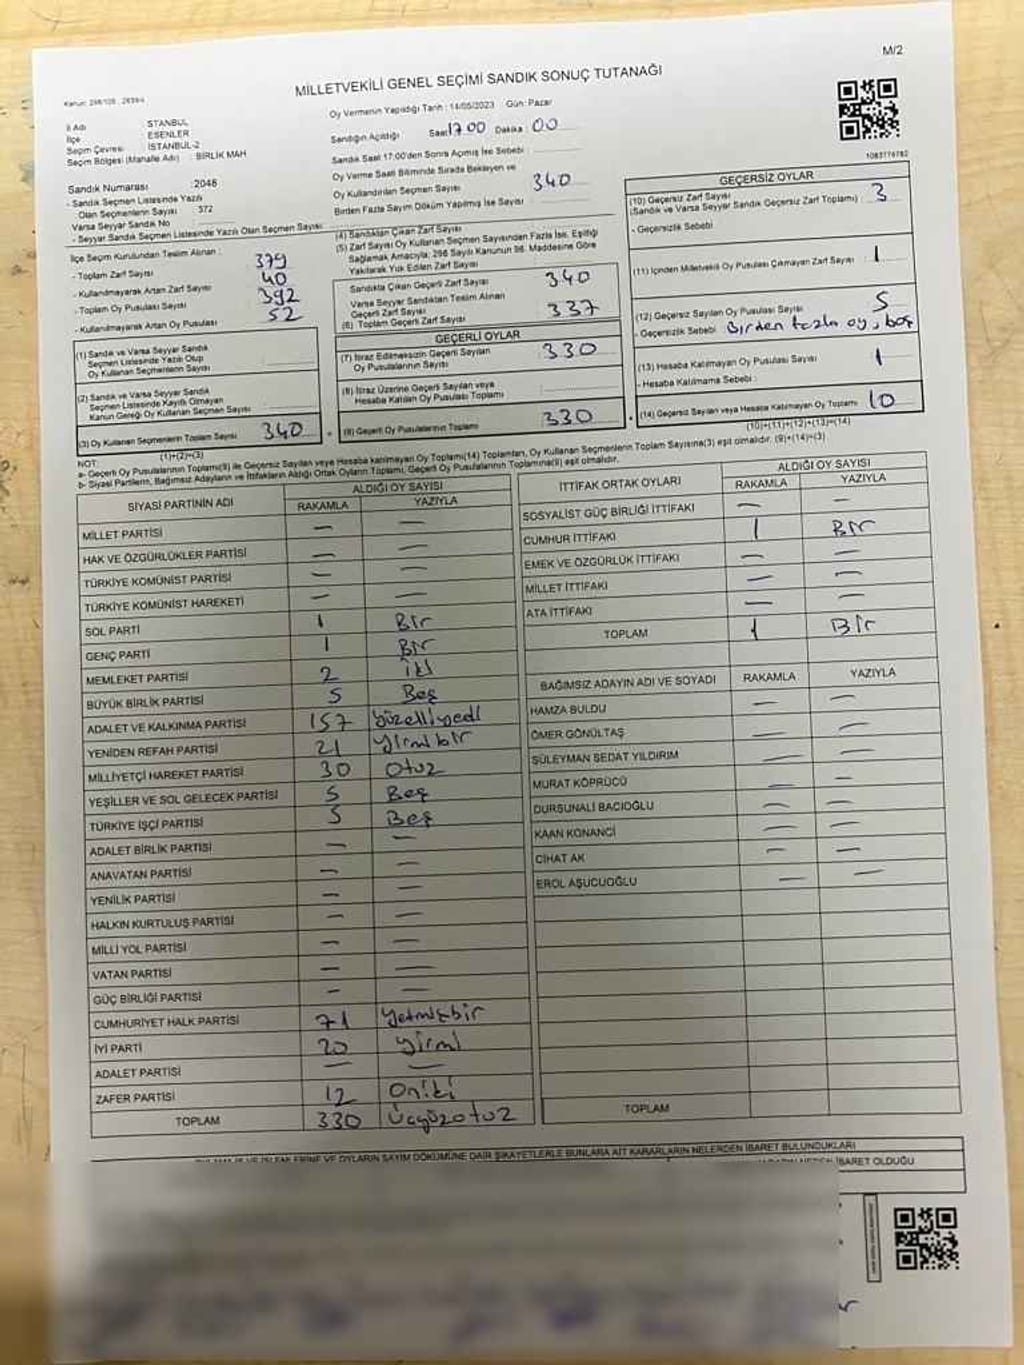 M/2
MİLLETVEKİLİ GENEL SEÇİMİ SANDIK SONUÇ TUTANAĞI
Oy Vermenin Yapıldığı Tarih : 14/05/2023 Gün: Pazar
İl Adı : İSTANBUL
İlçe : ESENLER
Seçim Çevresi : İSTANBUL-2
Seçim Bölgesi (Mahalle Adı) : BİRLİK MAH
Sandığın Açıldığı Saat 17 00 Dakika : 00
Sandık Saat 17:00'den Sonra Açılmış İse Sebebi :
Oy Verme Saati Bitiminde Sırada Bekleyen ve
Oy Kullandırılan Seçmen Sayısı 340
Birden Fazla Sayım Döküm Yapılmış İse Sayısı
1083776782
Sandık Numarası : 2046
- Sandık Seçmen Listesinde Yazılı
Olan Seçmenlerin Sayısı : 372
Varsa Seyyar Sandık No :
- Seyyar Sandık Seçmen Listesinde Yazılı Olan Seçmen Sayısı :
İlçe Seçim Kurulundan Teslim Alınan :
- Toplam Zarf Sayısı 379
- Kullanılmayarak Artan Zarf Sayısı 40
- Toplam Oy Pusulası Sayısı 392
- Kullanılmayarak Artan Oy Pusulası 52
(1) Sandık ve Varsa Seyyar Sandık
Seçmen Listesinde Yazılı Olup
Oy Kullanan Seçmenlerin Sayısı
(2) Sandık ve Varsa Seyyar Sandık
Seçmen Listesinde Kayıtlı Olmayan
Kanun Gereği Oy Kullanan Seçmen Sayısı
(3) Oy Kullanan Seçmenlerin Toplam Sayısı 340
(1)+(2)=(3)
(4) Sandıktan Çıkan Zarf Sayısı
(5) Zarf Sayısı Oy Kullanan Seçmen Sayısından Fazla İse, Eşitliği
Sağlamak Amacıyla; 298 Sayılı Kanunun 98. Maddesine Göre
Yakılarak Yok Edilen Zarf Sayısı
Sandıkta Çıkan Geçerli Zarf Sayısı 340
Varsa Seyyar Sandıktan Teslim Alınan
Geçerli Zarf Sayısı
(6) Toplam Geçerli Zarf Sayısı 337
GEÇERLİ OYLAR
(7) İtiraz Edilmeksizin Geçerli Sayılan
Oy Pusulalarının Sayısı 330
(8) İtiraz Üzerine Geçerli Sayılan veya
Hesaba Katılan Oy Pusulası Toplamı
(9) Geçerli Oy Pusulalarının Toplamı 330
GEÇERSİZ OYLAR
(10) Geçersiz Zarf Sayısı
(Sandık ve Varsa Seyyar Sandık Geçersiz Zarf Toplamı) 3
- Geçersizlik Sebebi
(11) İçinden Milletvekili Oy Pusulası Çıkmayan Zarf Sayısı 1
(12) Geçersiz Sayılan Oy Pusulası Sayısı 5
- Geçersizlik Sebebi Birden fazla oy, boş
(13) Hesaba Katılmayan Oy Pusulası Sayısı 1
- Hesaba Katılmama Sebebi :
(14) Geçersiz Sayılan veya Hesaba Katılmayan Oy Toplamı 10
(10)+(11)+(12)+(13)=(14)
NOT:
a- Geçerli Oy Pusulalarının Toplamı(9) ile Geçersiz Sayılan veya Hesaba katılmayan Oy Toplamı(14) Toplamları, Oy Kullanan Seçmenlerin Toplam Sayısına(3) eşit olmalıdır. (9)+(14)=(3)
b- Siyasi Partilerin, Bağımsız Adayların ve İttifakların Aldığı Ortak Oyların Toplamı, Geçerli Oy Pusulalarının Toplamına(9) eşit olmalıdır.
SİYASİ PARTİNİN ADI ALDIĞI OY SAYISI
RAKAMLA YAZIYLA
MİLLET PARTİSİ — —
HAK VE ÖZGÜRLÜKLER PARTİSİ — —
TÜRKİYE KOMÜNİST PARTİSİ — —
TÜRKİYE KOMÜNİST HAREKETİ — —
SOL PARTİ 1 Bir
GENÇ PARTİ 1 Bir
MEMLEKET PARTİSİ 2 iki
BÜYÜK BİRLİK PARTİSİ 5 Beş
ADALET VE KALKINMA PARTİSİ 157 yüzelliyedi
YENİDEN REFAH PARTİSİ 21 yirmibir
MİLLİYETÇİ HAREKET PARTİSİ 30 otuz
YEŞİLLER VE SOL GELECEK PARTİSİ 5 Beş
TÜRKİYE İŞÇİ PARTİSİ 5 Beş
ADALET BİRLİK PARTİSİ — —
ANAVATAN PARTİSİ — —
YENİLİK PARTİSİ — —
HALKIN KURTULUŞ PARTİSİ — —
MİLLİ YOL PARTİSİ — —
VATAN PARTİSİ — —
GÜÇ BİRLİĞİ PARTİSİ — —
CUMHURİYET HALK PARTİSİ 71 yetmişbir
İYİ PARTİ 20 yirmi
ADALET PARTİSİ — —
ZAFER PARTİSİ 12 Oniki
TOPLAM 330 Üçyüzotuz
İTTİFAK ORTAK OYLARI ALDIĞI OY SAYISI
RAKAMLA YAZIYLA
SOSYALİST GÜÇ BİRLİĞİ İTTİFAKI — —
CUMHUR İTTİFAKI 1 Bir
EMEK VE ÖZGÜRLÜK İTTİFAKI — —
MİLLET İTTİFAKI — —
ATA İTTİFAKI — —
TOPLAM 1 Bir
BAĞIMSIZ ADAYIN ADI VE SOYADI RAKAMLA YAZIYLA
HAMZA BULDU — —
ÖMER GÖNÜLTAŞ — —
SÜLEYMAN SEDAT YILDIRIM — —
MURAT KÖPRÜCÜ — —
DURSUNALİ BACIOĞLU — —
KAAN KONANCİ — —
CİHAT AK — —
EROL AŞUCUOĞLU — —
TOPLAM
OYLARIN SAYIM DÖKÜMÜNE DAİR ŞİKAYETLERLE BUNLARA AİT KARARLARIN NELERDEN İBARET BULUNDUKLARI
İBARET OLDUĞU